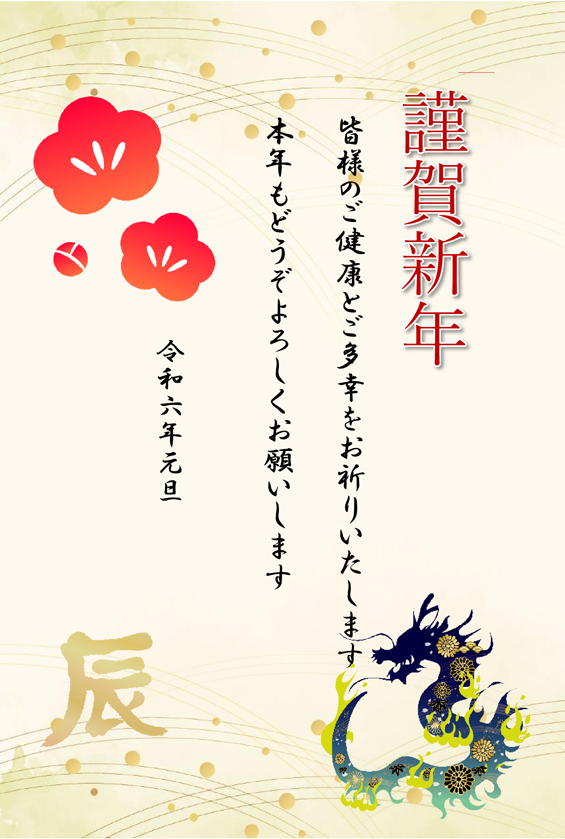 謹賀新年
皆様のご健康とご多幸をお祈りいたします
本年もどうぞよろしくお願いします
令和六年元旦
辰